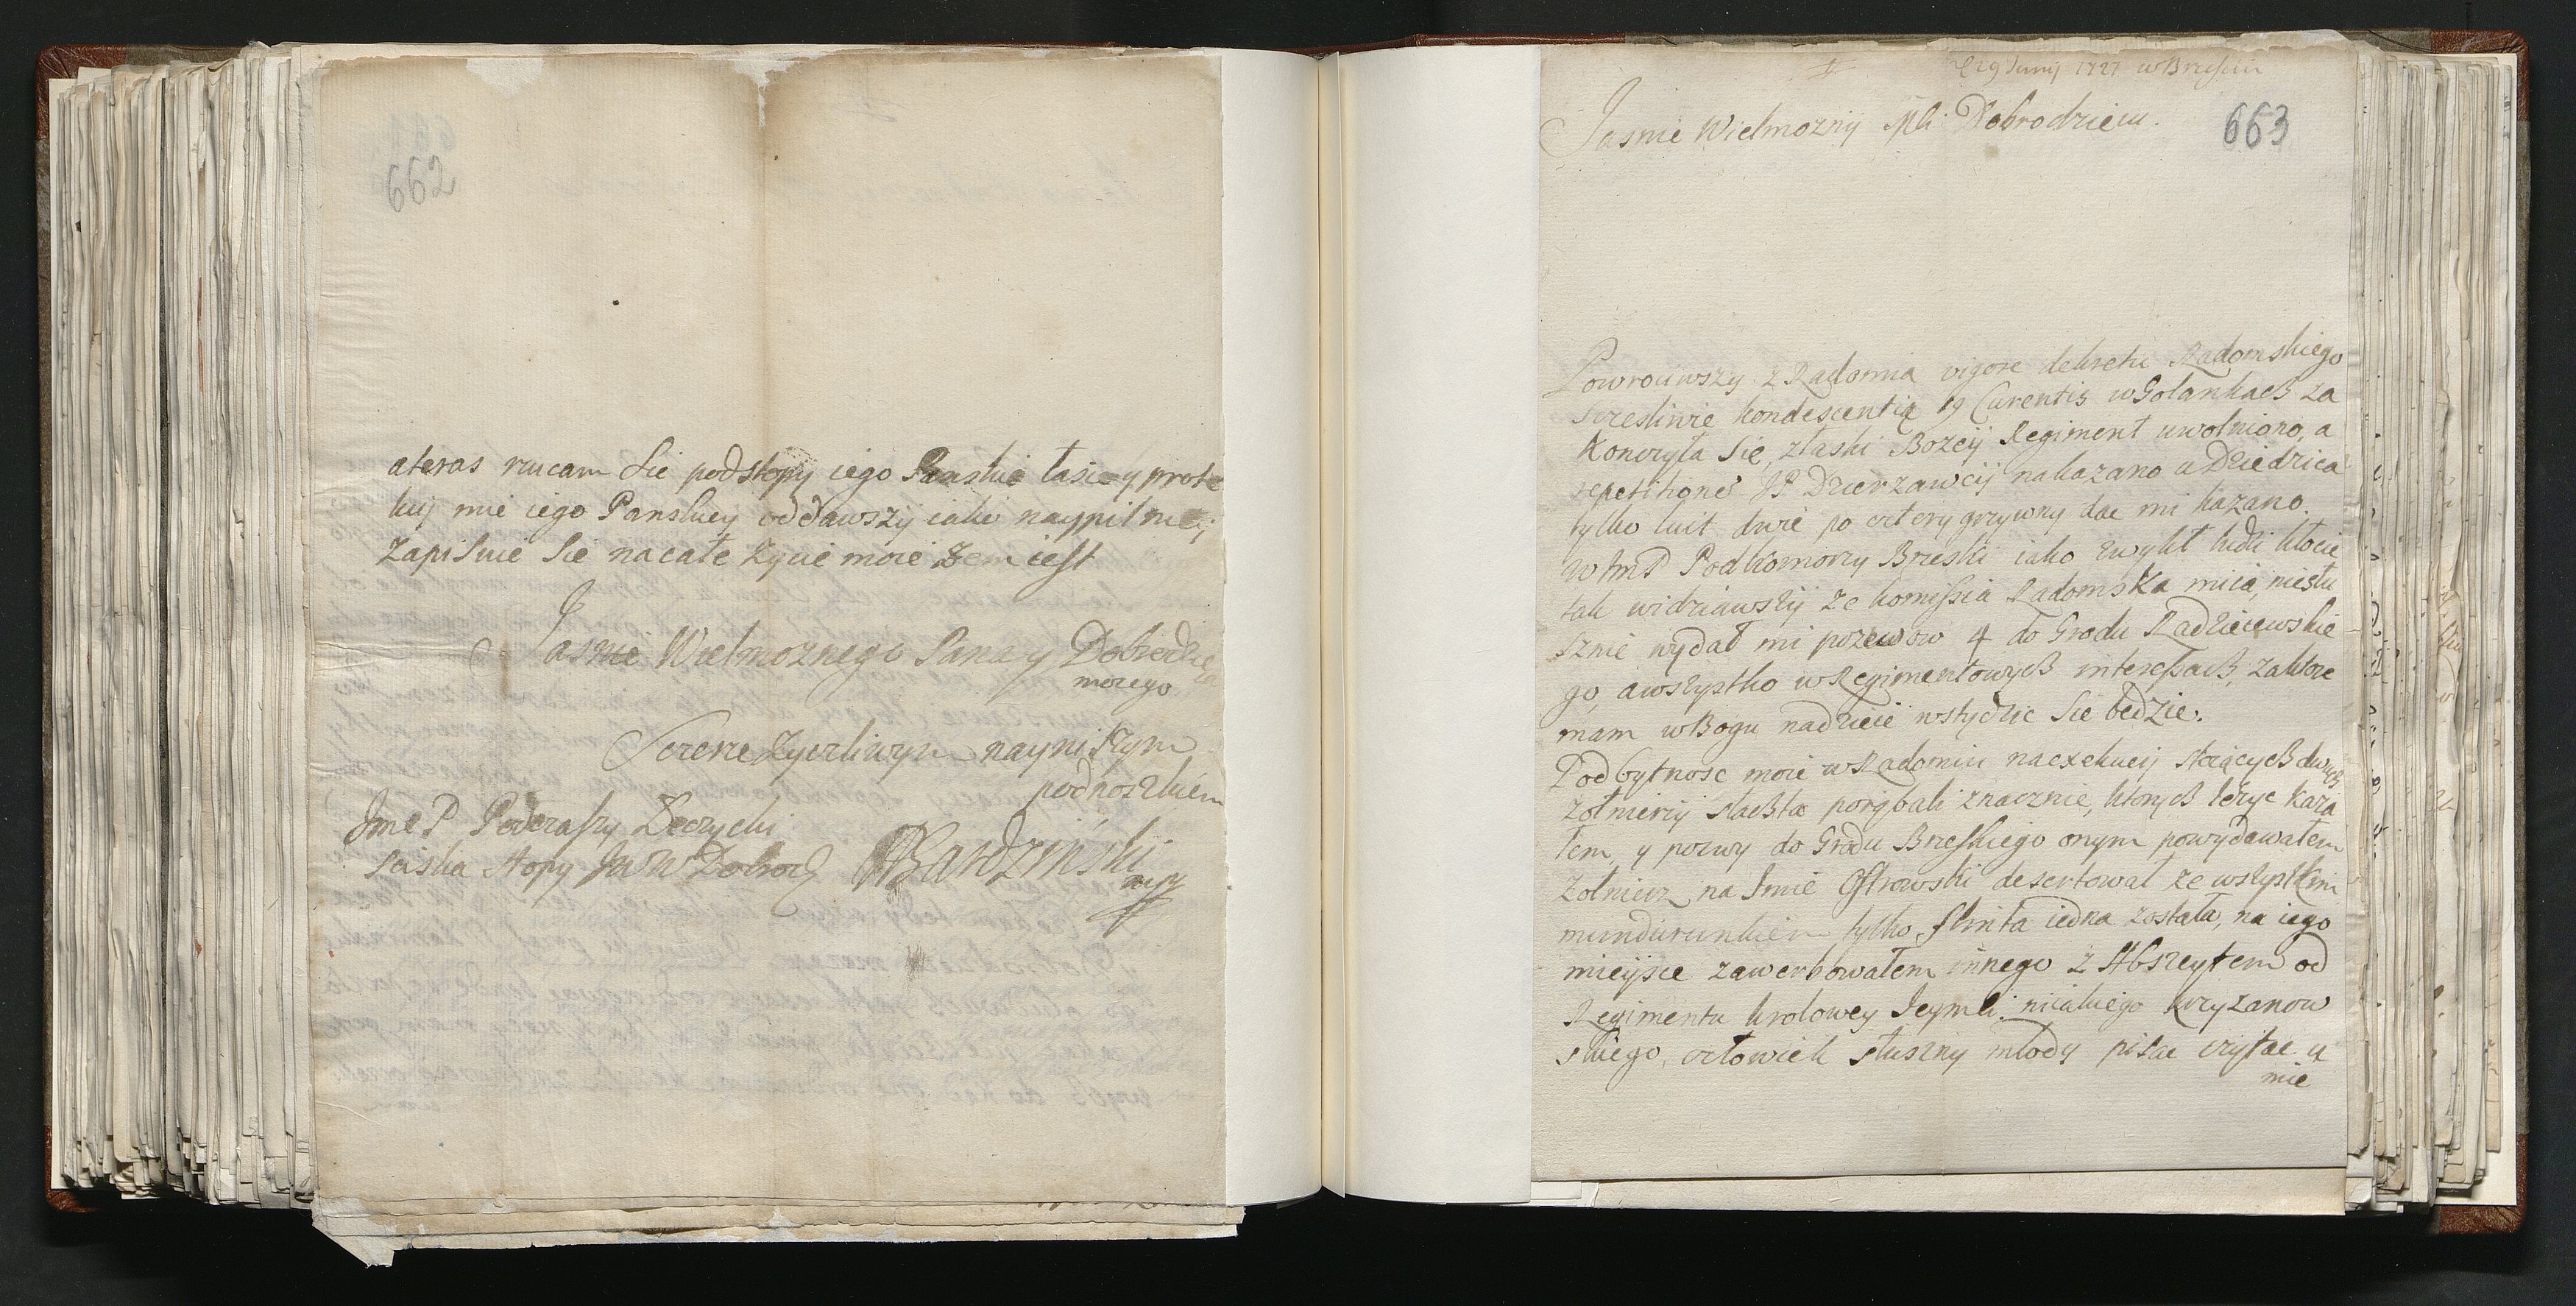 662
ateras rzucam Sie pod stopy iego Panskie łasce y prote
kcij mie iego Panskiey oddawszÿ iako naypilniey
zapisuie Sie na całe zycie moie zem iest
Jasnie Wielmoznego Pana y Dobrodzieia
moiego
Szczerze zyczliwym naynizszym
podnoszkiem
Jme P Podczaszy Łeczycki
sciska stopy JWW Dobrodz
Bardzinski
mpp
29 Junij 1727 w Brzesciu
663
Jasnie Wielmoznÿ Mci Dobrodzieiu.
Powrociwszy z Radomia vigore dekretu Radomskiego
szczesliwie kondescentia 19 Currentis w Golankach za
konczyła Sie, z łaski Bozeÿ Regiment uwolniono, a
repetitione JP Dzierzawcÿ nakazano a Dziedzica
tylko luit dwie po cztery grzywny dac mi kazano.
W ImP Podkomorzy Brzeski iako zwykł ludzi kłocic
tak widziawszÿ ze komissia Radomska mieia, niesłu
sznie wydał mi pozewow 4 do Grodu Radzieiewskie
go, a wszystko w Regimentowych interessach, za ktore
mam w Bogu nadzieie wstydzic Sie bedzie.
Pod bytnosc moie w Radomiu na exekucij stoiących dwuch
zołnierzÿ slachta porąbali znacznie, ktorych leczyc kaza
łem, y pozwy do Grodu Brzeskiego onym powydawałem
zołnierz na Jmie Ostrowski desertował ze wszystkim
mundurunkiem tylko flinta iedna została, na iego
mieysce zawerbowałem innego z Abszeytem od
Regimentu krolowey Jeymci. nieiakiego Krzyzanow
skiego, człowiek słuszny młody pisac czytac u
mie